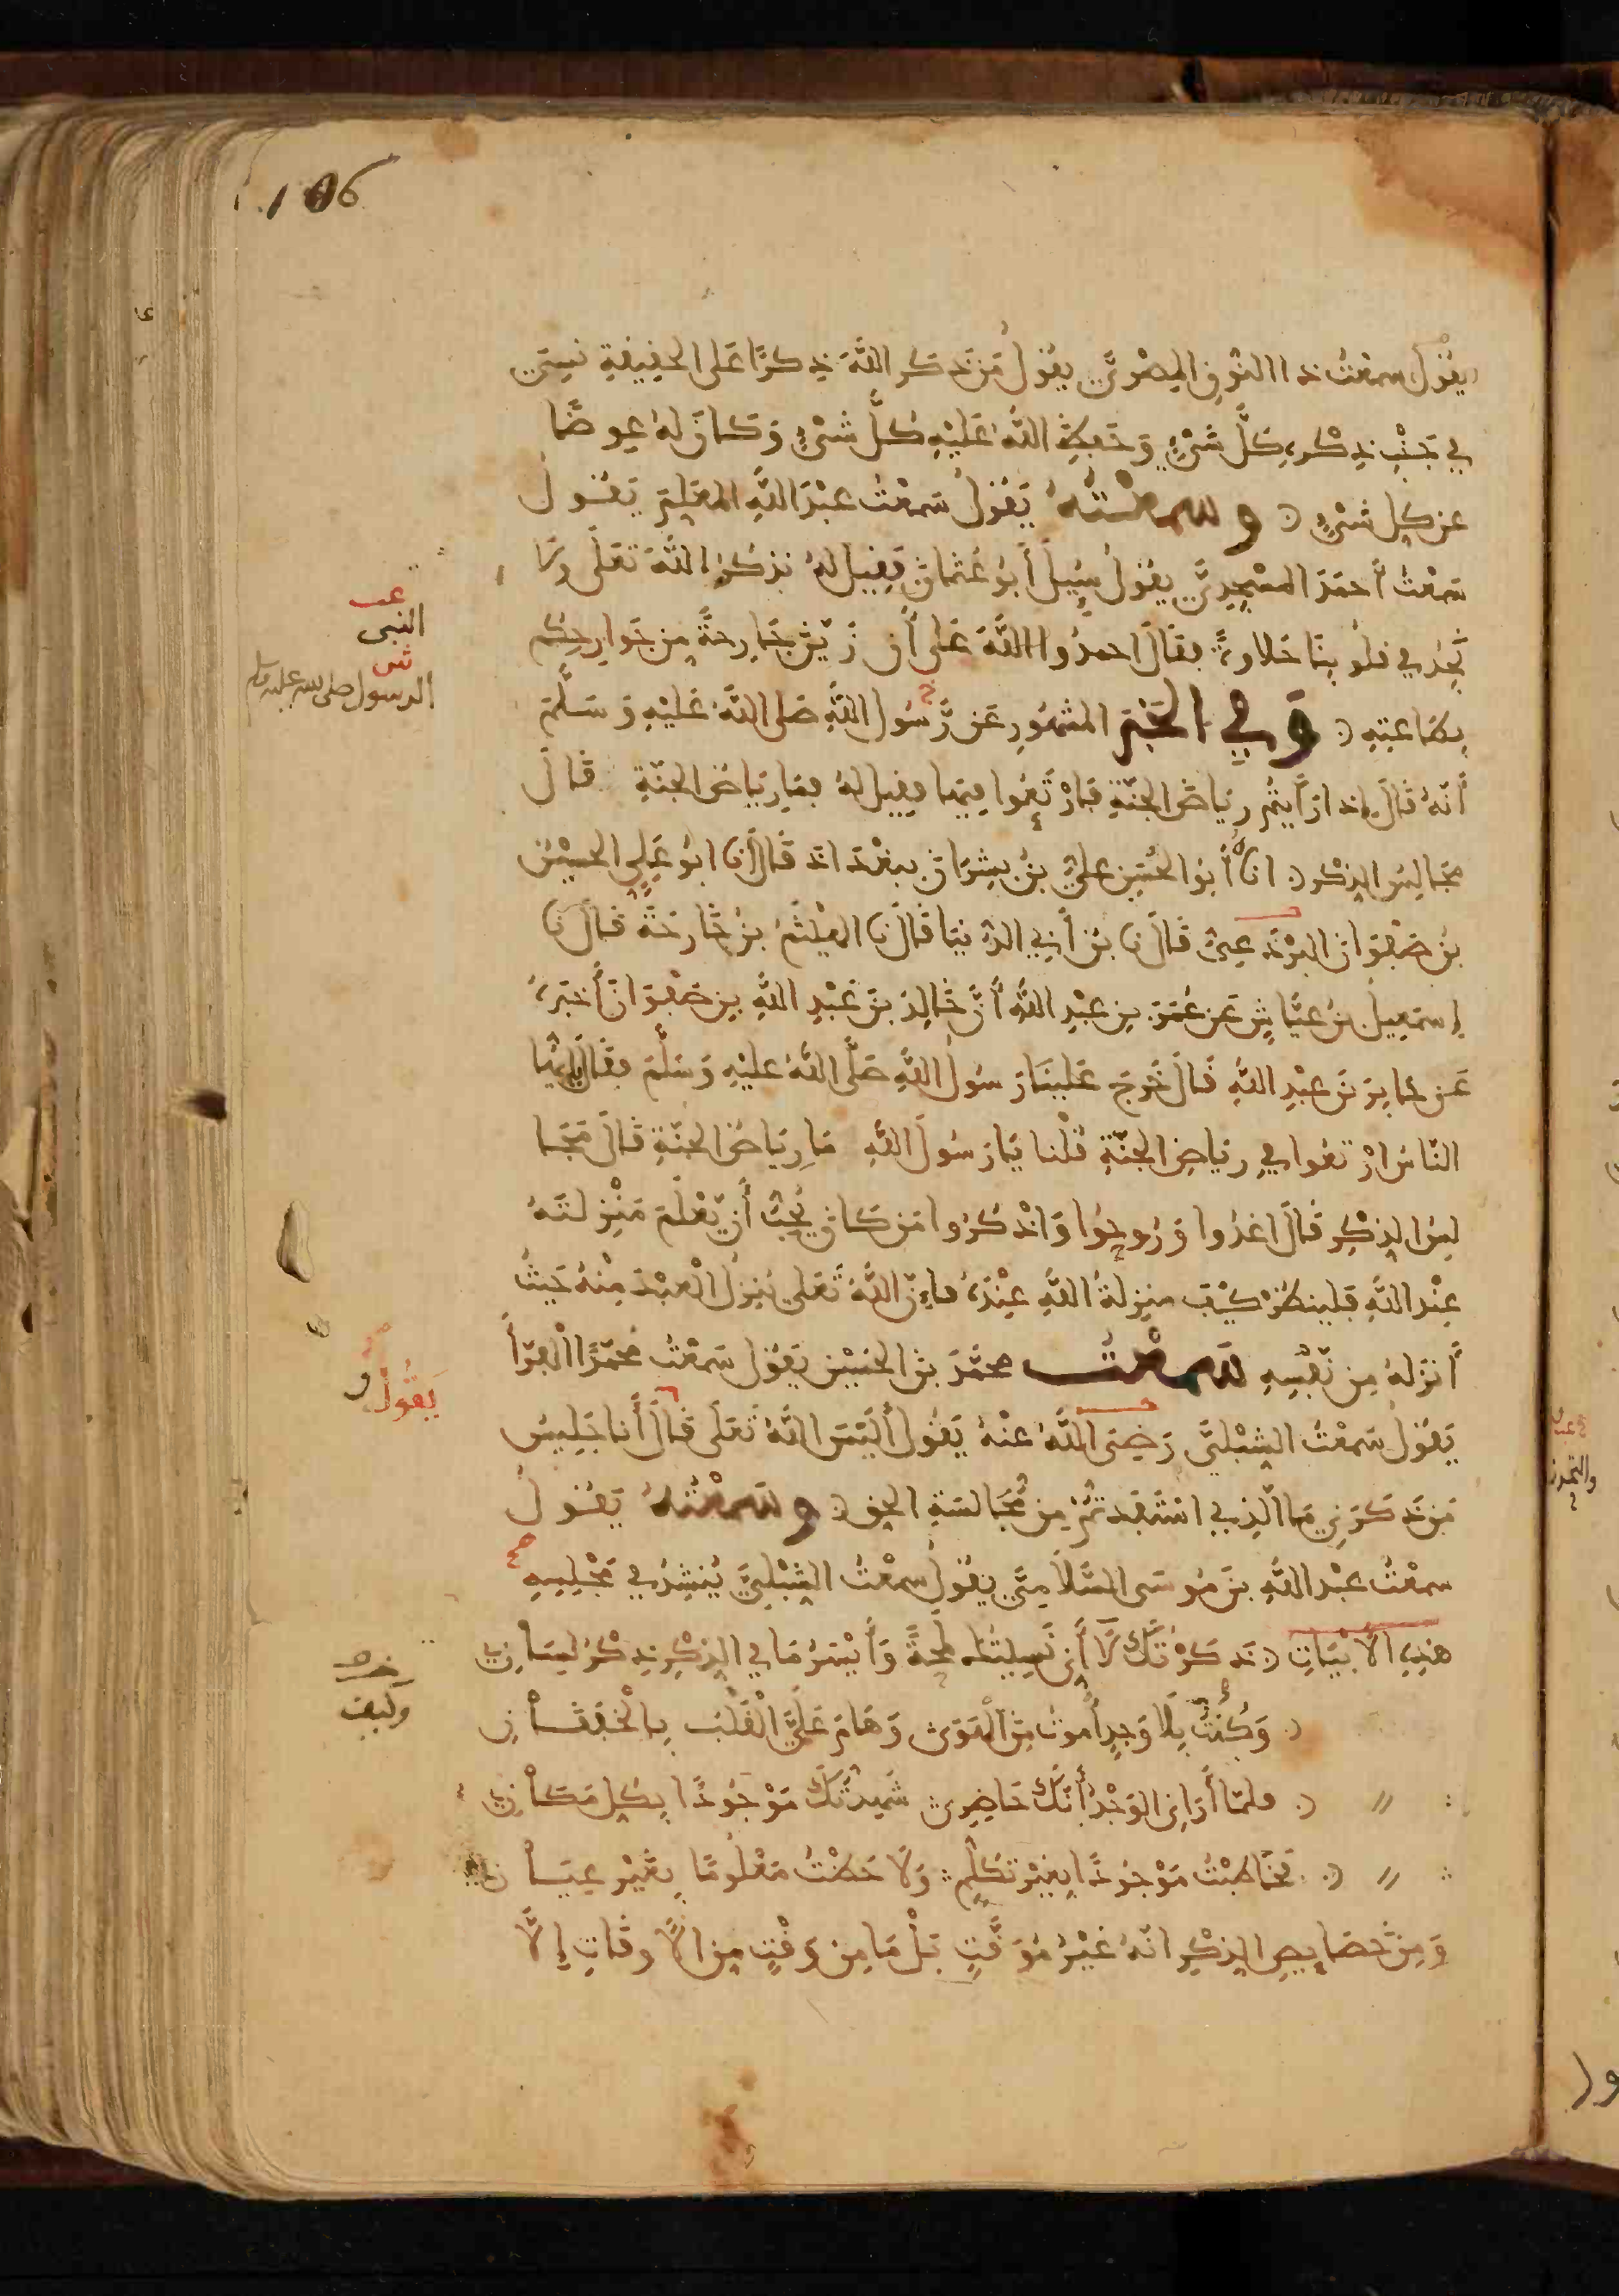 106
يقول سمعت ذا النون المصري يقول من ذكر الله ذكرًا على الحقيقة نسي
في جنب ذكره كل شيء وحفظ الله عليه كل شيء وكان له عوضًا
عن كل شيء وسمعته يقول سمعت عبد الله المعلم يقول
سمعت أحمد المسجدي يقول سيل أبو عثمان فقيل له نذكر الله تعلى ولا
نجد في قلوبنا حلاوة فقال احمدوا الله على أن زين جارحة من جوارحكم
بطاعته وفي الخبر المشهور عن رسول الله صلى الله عليه وسلم
أنه قال إذا رأيتم رياض الجنة فارتعوا فيها فقيل له فما رياض الجنة قال
مجالس الذكر انا أبو الحسين علي بن بشران ببغداد قال نا ابو علي الحسين
بن صفوان البرذعي قال نا بن أبي الدنيا قال نا الهيثم بن خارجة قال نا
إسمعيل بن عياش عن عمر بن عبد الله أن خالد بن عبد الله بن صفوان أخبره
عن جابر بن عبد الله قال خرج علينا رسول الله صلى الله عليه وسلم فقال يأيها
الناس ارتعوا في رياض الجنة قلنا يا رسول الله ما رياض الجنة قال مجا
لس الذكر قال اغدوا وروحوا واذكروا من كان يحب أن يعلم منزلته
عند الله فلينظر كيف منزلة الله عنده فإن الله تعلى ينزل العبد منه حيث
أنزله من نفسه سمعت محمد بن الحسين يقول سمعت محمدًا الفرّاء
يقول سمعت الشبلي رضي الله عنه يقول أليس الله تعلى قال أنا جليس
من ذكرني ما الذي استفدتم من مجالسة الحق وسمعته يقول
سمعت عبد الله بن موسى السلامي يقول سمعت الشبلي ينشد في مجلسه
هذه الأبيات ذكرتك لا أني نسيتك لمحة وأيسر ما في الذكر ذكر لساني
وكنت بلا وجد أموت من الهوى وهام علي القلب بالخفقان
فلما أراني الوجد أنك حاضري شهدتك موجودًا بكل مكان
فخاطبت موجودًا بغير تكلم ولاحظت معلومًا بغير عيان
ومن خصايص الذكر انه غير موقت بل ما من وقت من الأوقات إلا
النبي
الرسول صلى الله عليه وسلم
يقول
وكيف